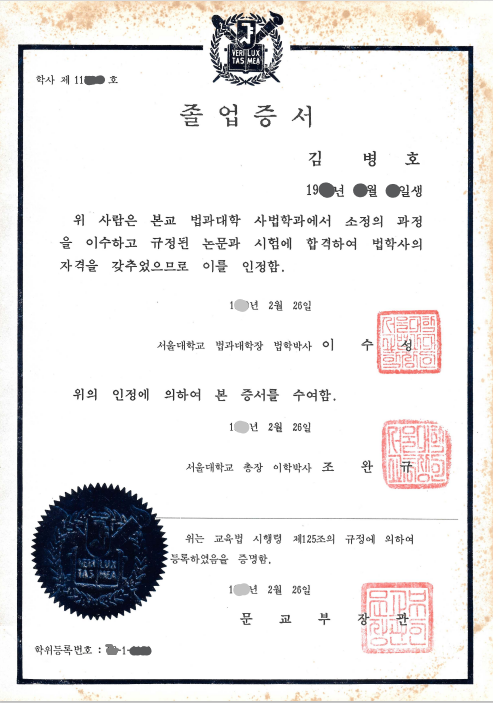 VERI LUX
TAS MEA
학사 제 11 호
졸업증서
김 병 호
19 년 월 일생
위 사람은 본교 법과대학 사법학과에서 소정의 과정
을 이수하고 규정된 논문과 시험에 합격하여 법학사의
자격을 갖추었으므로 이를 인정함.
1 년 2월 26일
서울대학교 법과대학장 법학박사 이 수 성
위의 인정에 의하여 본 증서를 수여함.
1 년 2월 26일
서울대학교 총장 이학박사 조 완 규
위는 교육법 시행령 제125조의 규정에 의하여
등록하였음을 증명함.
VERI LUX
TAS MEA
1 년 2월 26일
문 교 부 장 관
학위등록번호 : -1-